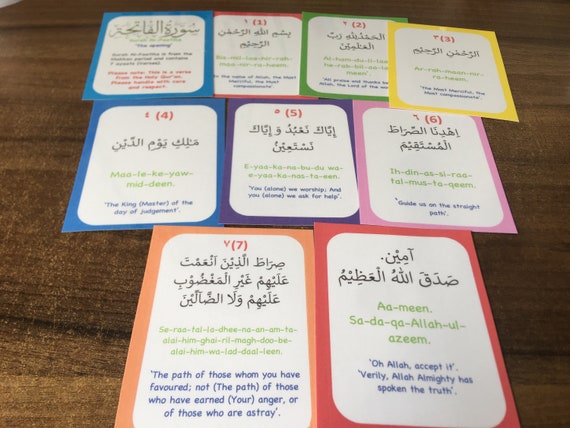 سُورَةُ الفَاتِحَة
Surah Al-Faatiha
'The opening'
Surah Al-Faatiha is from the
Makkan period and contains
7 ayaats (verses).
Please note: This is a verse
from the Holy Qur'an.
Please handle with care
and respect.
١ (1)
بِسْمِ اللهِ الرَّحْمٰنِ
الرَّحِيْمِ
Bis-mil-laa-hir-rah-
maa-nir-ra-heem.
'In the name of Allah, the Most
Merciful, the Most
compassionate'.
٢ (2)
اَلْحَمْدُلِلّٰهِ رَبِّ
الْعٰلَمِيْنَ
Al-ham-du-li-laa-
he-rah-bil-aa-la-
meen'.
'All praise and thanks be
Allah, the Lord of the wor
٣ (3)
اَلرَّحْمٰنِ الرَّحِيْمِ
Ar-rah-maan-nir-
ra-heem.
'The Most Merciful, the Most
compassionate'.
٤ (4)
مٰلِكِ يَوْمِ الدِّيْنِ
Maa-le-ke-yaw-
mid-deen.
'The King (Master) of the
day of judgement'.
٥ (5)
اِيَّاكَ نَعْبُدُ وَ اِيَّاكَ
نَسْتَعِيْنُ
E-yaa-ka-na-bu-du wa-
e-yaa-ka-nas-ta-een.
'You (alone) we worship; And
you (alone) we ask for help'.
٦ (6)
اِهْدِنَا الصِّرَاطَ
الْمُسْتَقِيْمَ
Ih-din-as-si-raa-
tal-mus-ta-qeem.
'Guide us on the straight
path'.
٧ (7)
صِرَاطَ الَّذِيْنَ اَنْعَمْتَ
عَلَيْهِمْ غَيْرِ الْمَغْضُوْبِ
عَلَيْهِمْ وَلَا الضَّآلِّيْنَ
Se-raa-tal-la-dhee-na-an-am-ta-
alai-him-ghai-ril-magh-doo-be-
alai-him-wa-lad-daal-leen.
'The path of those whom you have
favoured; not (The path) of those
who have earned (Your) anger, or
of those who are astray'.
آمِيْن.
صَدَقَ اللهُ الْعَظِيْمُ
Aa-meen.
Sa-da-qa-Allah-ul-
azeem.
'Oh Allah, accept it'.
'Verily, Allah Almighty has
spoken the truth'.